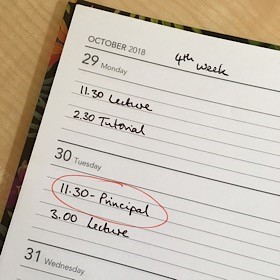 OCTOBER 2018
4th Week
29 Monday
11.30 Lecture
2.30 Tutorial
30 Tuesday
11:30 - Principal
3.00 Lecture
31 Wednesday